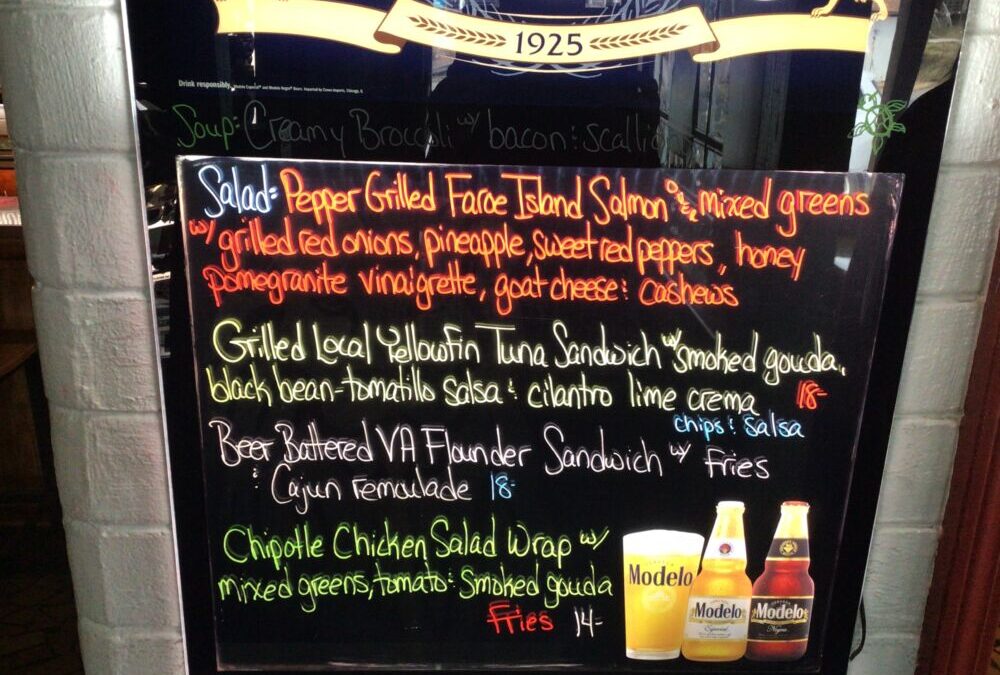 1925
Drink responsibly.
Soup: Creamy Broccoli w/ bacon & scallio
Salad: Pepper Grilled Faroe Island Salmon on mixed greens
w/ grilled red onions, pineapple, sweet red peppers, honey
pomegranite vinaigrette, goat cheese & cashews
Grilled Local Yellowfin Tuna Sandwich w/ smoked gouda,
black bean-tomatillo salsa & cilantro lime crema 18-
chips & salsa
Beer Battered VA Flounder Sandwich w/ Fries
& Cajun remoulade 18-
Chipotle Chicken Salad Wrap w/
mixed greens, tomato & Smoked gouda
Fries 14-
Modelo
Modelo
Especial
Modelo
Negra